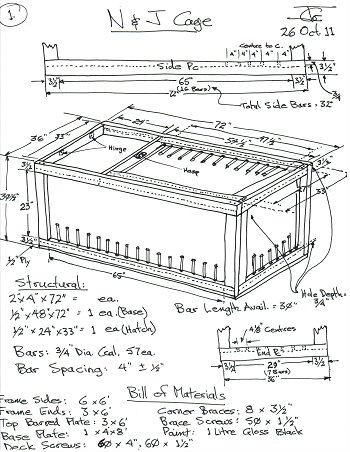 1.
N & J Cage
26 Oct 11
Centre to C.
4" 4" 4" 4"
Side Pc
3½"
3½" 65" 3½"
72" (16 Bars)
¾
Total Side Bars: 32"
36" 33" 24" 72"
Hinge
Hasp
33"
30½"
3½"
23"
3½"
½" Ply
65"
Hole Depth:
¾"
Structural:
2"x4"x72" = ea.
½"x48"x72" = 1 ea. (Base)
½" x 24"x33" = 1 ea (Hatch)
Bars: ¾" Dia Gal. 57 ea.
Bar Spacing: 4" ± ½"
Bar Length Avail. = 30"
4⅛" Centres
End Pc
3½" 29" 3½"
(7 Bars)
36"
Bill of Materials
Frame Sides: 6 x 6'
Frame Ends: 3 x 6'
Top Barred Plate: 3 x 6'
Base Plate: 1 x 4 x 8'
Deck Screws: 60 x 4", 60 x 1½"
Corner Braces: 8 x 3½"
Brace Screws: 50 x 1½"
Paint: 1 Litre Gloss Black